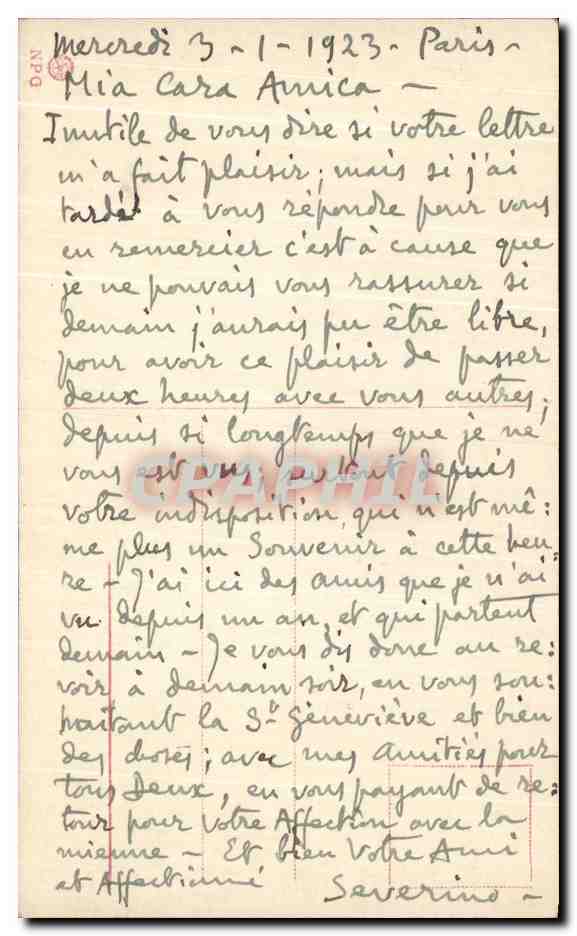 Mercredi 3 - 1 - 1923 - Paris -
NPG
Mia Cara Amica -
Inutile de vous dire si votre lettre
m'a fait plaisir; mais si j'ai
tardé à vous répondre pour vous
en remercier c'est à cause que
je ne pouvais vous rassurer si
demain j'aurais pu être libre,
pour avoir ce plaisir de passer
deux heures avec vous autres;
depuis si longtemps que je ne
vous est vus; surtout depuis
CPAPHIL
votre indisposition, qui n'est mê:
me plus un Souvenir à cette heu-
re - J'ai ici des amis que je n'ai
vu depuis un an, et qui partent
demain - Je vous dis donc au re:
voir à demain soir, en vous sou:
haitant la Ste Géneviève et bien
des choses; avec mes Amitiés pour
tous Deux, en vous payant de re:
tour pour Votre Affection avec la
mienne - Et bien Votre Ami
et Affectionné Severino -